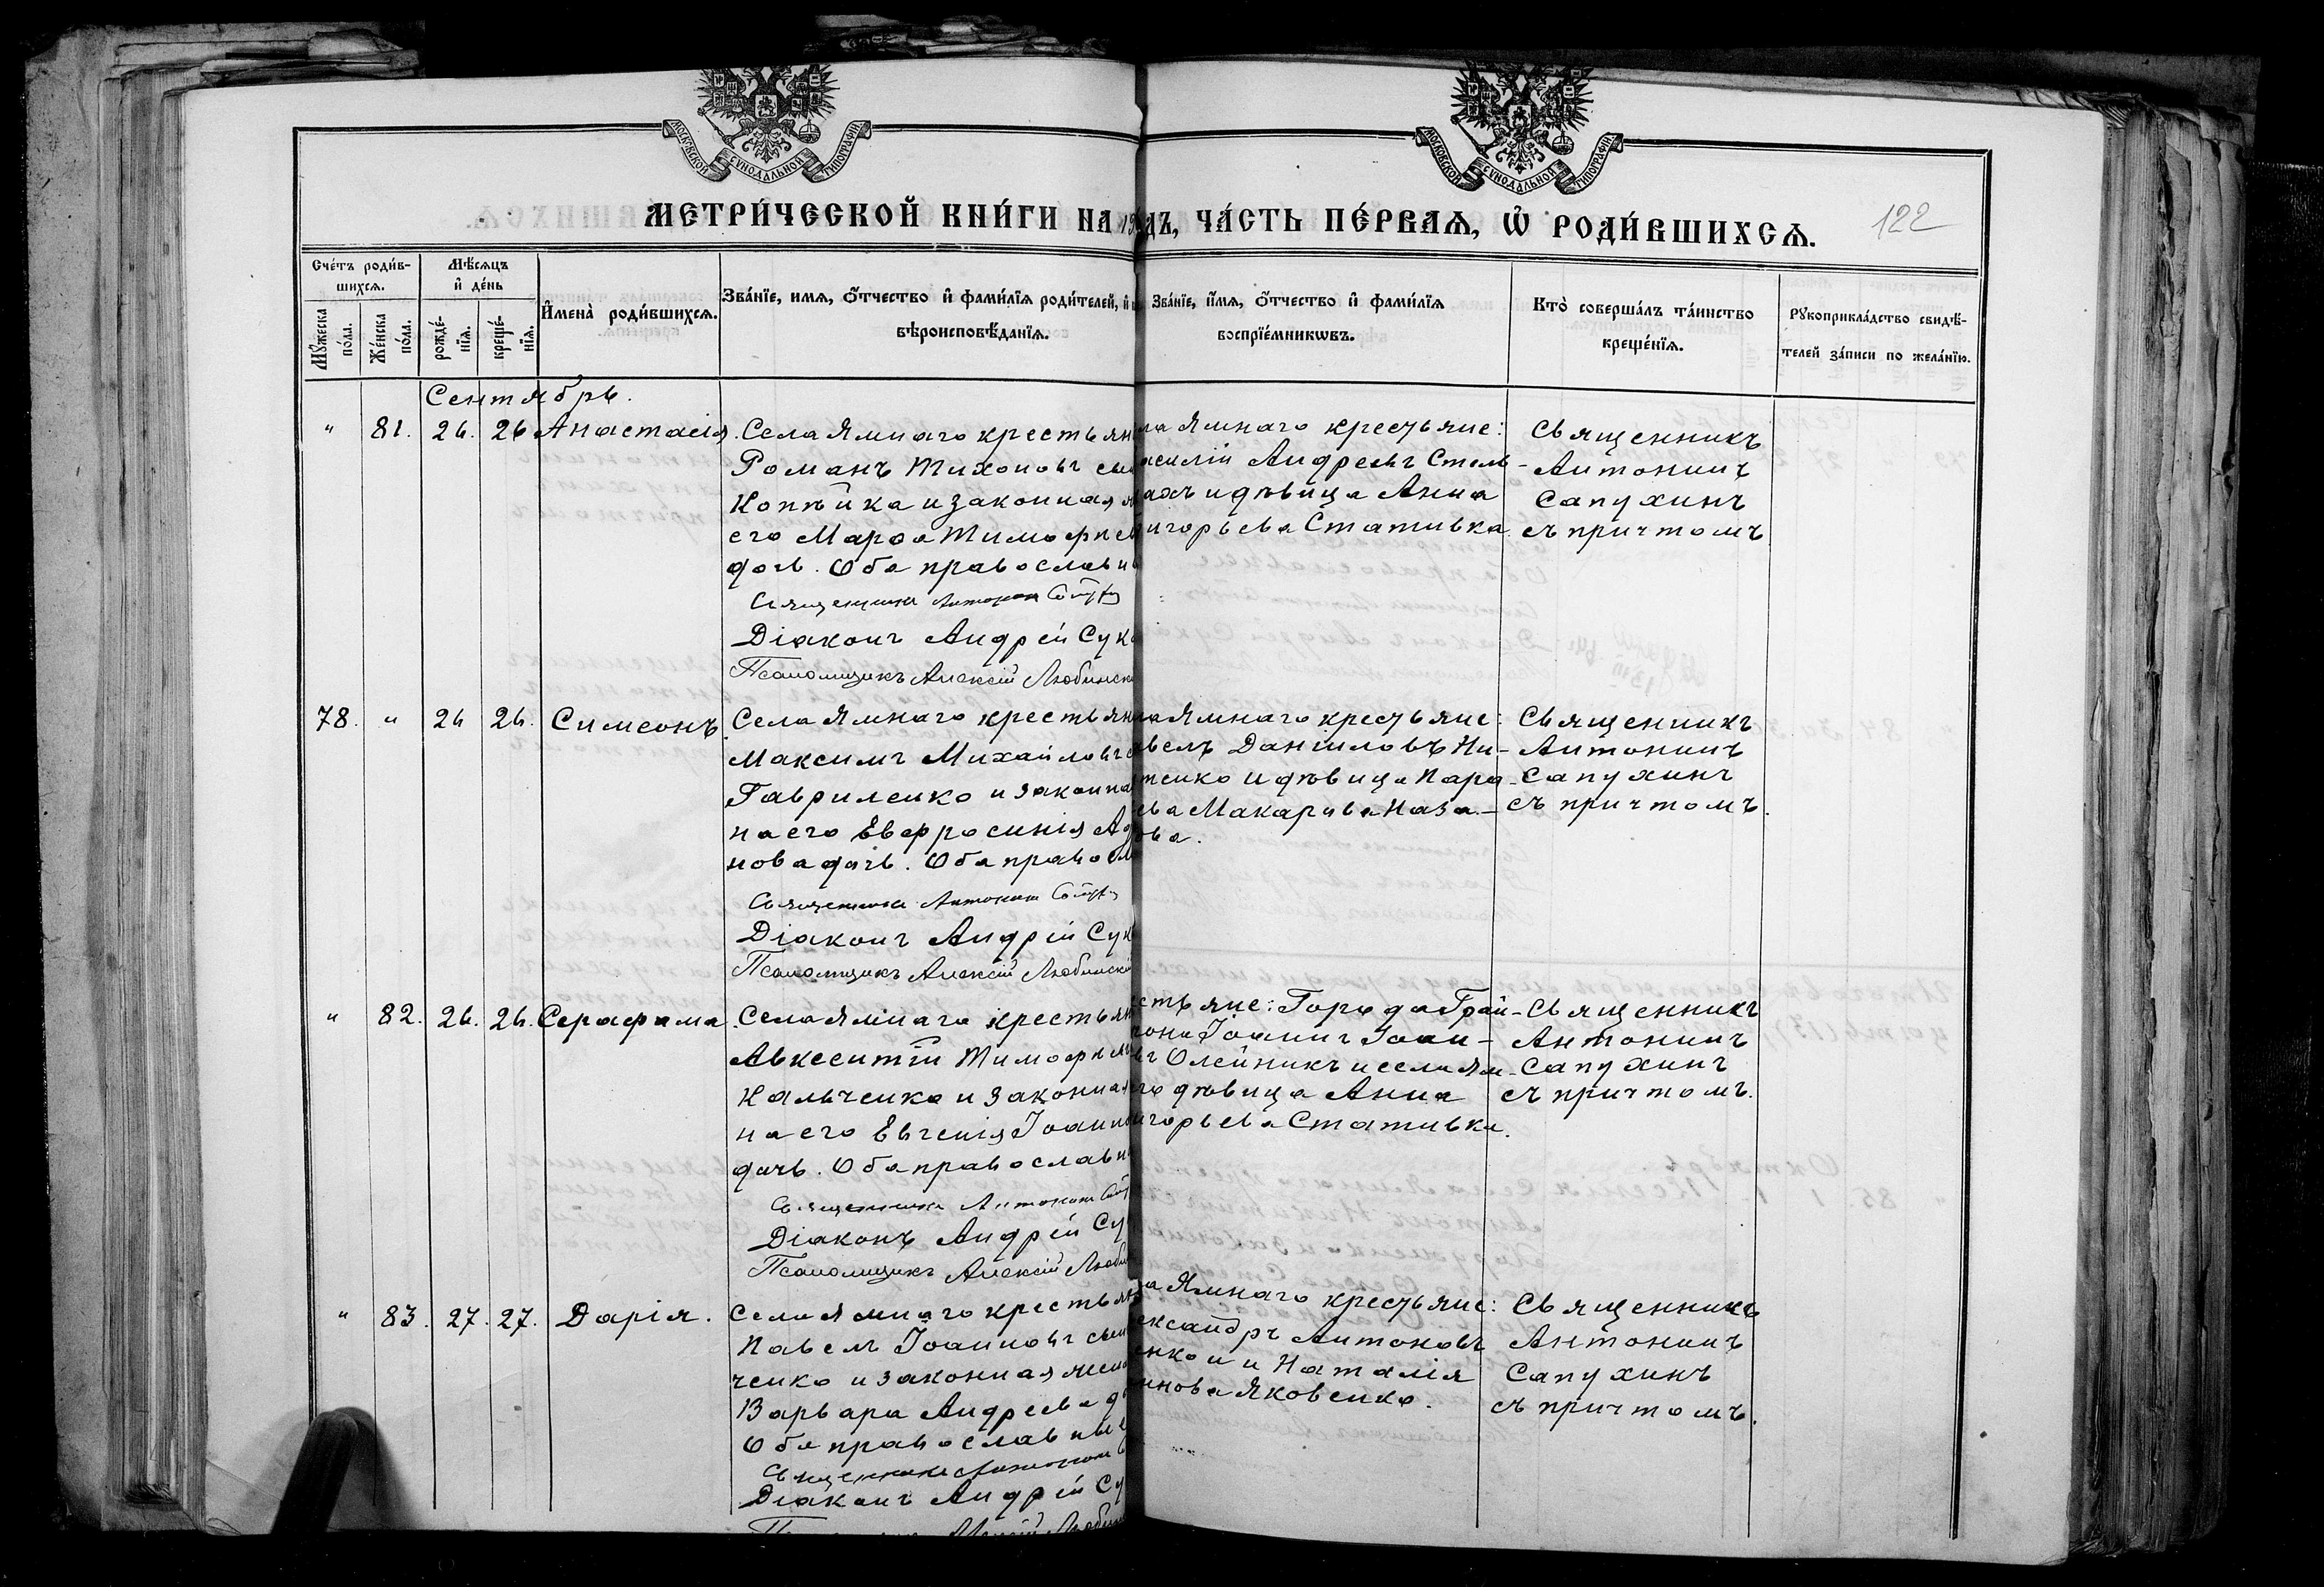 МОСКОВСКОЙ СѴНОДАЛЬНОЙ ТИПОГРАФІИ
МОСКОВСКОЙ СѴНОДАЛЬНОЙ ТИПОГРАФІИ
МЕТРИ́ЧЕСКОЙ КНИ́ГИ НА 19
ДЪ, ЧА́СТЬ ПЕ́РВАѦ, Ѡ҆ РОДИ́ВШИХСѦ.
122
Сче́тъ роди́в-
шихся.
Мѣ́сяцъ
и҆ де́нь
Мꙋ́жеска по́ла.
Же́нска по́ла.
рожде́-нїя.
креще́-нїя.
И҆мена̀ роди́вшихся.
Зва́нїе, имя, ѻ҆́тчество и҆ фами́лїя роди́телей, и҆
вѣроисповѣ́данїя.
Зва́нїе, и҆́мя, ѻ҆́тчество и҆ фами́лїя
воспрїе́мникѡвъ.
Кто̀ соверша́лъ та́инство
креще́нїя.
Рꙋкоприкла́дство свидѣ́-
телей за́писи по жела́нїю.
Сентябрь.
" 81. 26. 26 Анастасія.
Села Ямнаго крестьян
Романъ Тихоновъ сы
Копѣйка и законная
его Марѳа Тимофее
дочь. Оба православн
Священникъ Антонинъ
Діаконъ Андрей Сук
Псаломщикъ Алексій Любинск
ла Ямнаго крестьяне:
асилій Андреевъ Стель-
ахъ и дѣвица Анна
игорьева Стативка.
Священникъ
Антонинъ
Сапухинъ
съ причтомъ
78. " 26 26. Симеонъ.
Села Ямнаго крестьян
Максимъ Михайловъ
Гавриленко и законна
на его Евфросинія
нова дочь. Оба правосл
Священникъ Антонинъ
Діаконъ Андрей Сук
Псаломщикъ Алексій Любинскій
ла Ямнаго крестьяне:
авелъ Даніиловъ Ни-
тенко и дѣвица Пара-
ева Макарова Наза-
ова.
Священникъ
Антонинъ
Сапухинъ
съ причтомъ.
" 82. 26. 26. Серафима.
Села Ямнаго крестьян
Авксентій Тимофее
Кальченко и законная
на его Евгенія Іоанно
дочь. Оба православн
Священникъ Антонинъ
Діаконъ Андрей Су
Псаломщикъ Алексій Любин
стьяне: Города Грай-
рона Іоаннъ Іоан-
въ Олейникъ и села Ям-
го дѣвица Анна
игорьева Стативка.
Священникъ
Антонинъ
Сапухинъ
съ причтомъ.
" 83. 27. 27. Дарія.
Села Ямнаго крестьян
Павелъ Іоанновъ сын
ченко и законная жена
Варвара Андреева д
Оба православные
Священникъ Антонинъ
Діаконъ Андрей Су
ла Ямнаго крестьяне:
ександръ Антоновъ
енко и Наталія
инова Яковенко.
Священникъ
Антонинъ
Сапухинъ
съ причтомъ.